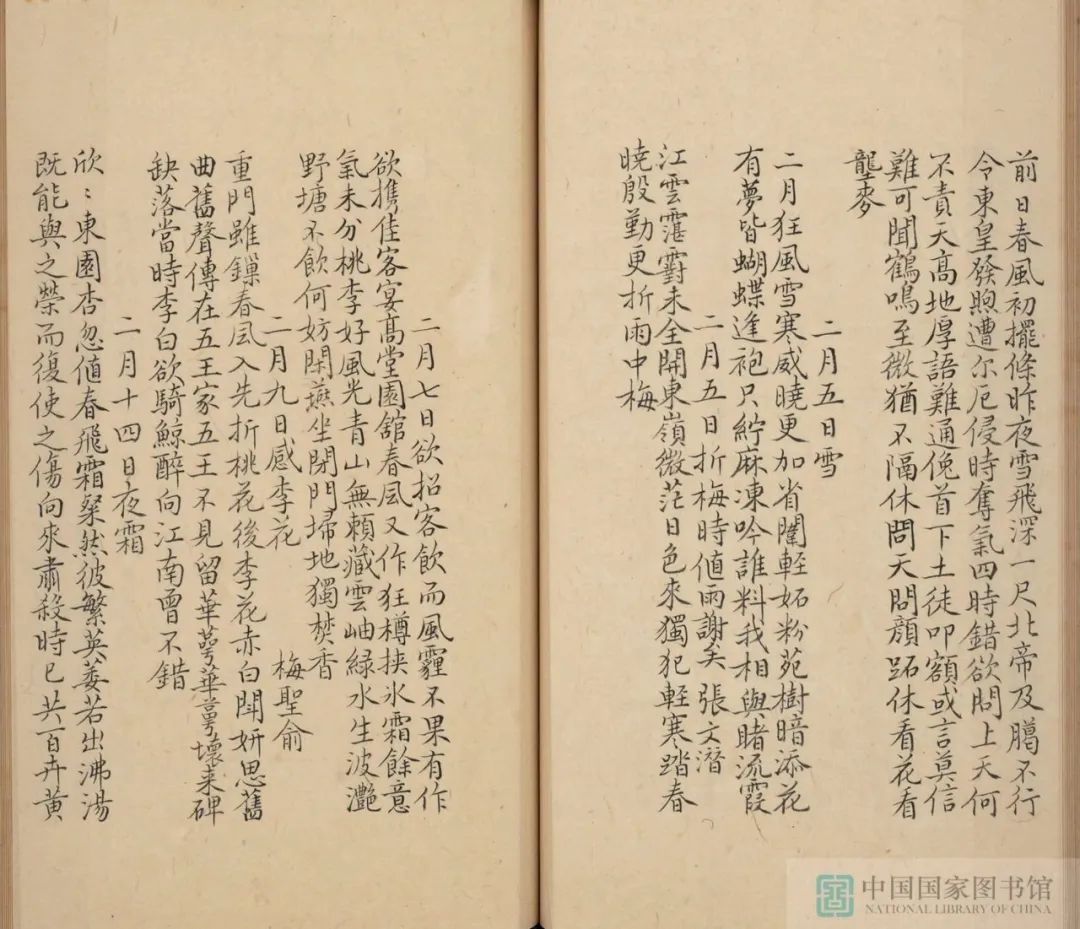 前日春風初擺條昨夜雪飛深一尺北帝及臈不行
令東皇發煦遭尔厄侵時奪氣四時錯欲問上天何
不責天髙地厚語難通俛首下土徒叩額或言莫信
難可聞鶴鳴至微猶不隔休問天問顏跖休看花看
壟麥
二月五日雪
二月狂風雪寒威曉更加省闈輕妬粉苑樹暗添花
有夢皆蝴蝶逢袍只紵麻凍吟誰料我相與賭流霞
二月五日折梅時值雨謝矣 張文潛
江雲霮䨴未全開東嶺微茫日色來獨犯輕寒踏春
曉殷勤更折雨中梅
二月七日欲招客飲而風霾不果有作
欲携佳客宴髙堂園舘春風又作狂樽挾氷霜餘意
氣未分桃李好風光青山無賴藏雲岫綠水生波灔
野塘不飲何妨閑燕坐閉門埽地獨焚香
二月九日感李花 梅聖俞
重門雖鏁春風入先折桃花後李花赤白聞妍思舊
曲舊聲傳在五王家五王不見留華萼華萼壞来碑
缺落當時李白欲騎鯨醉向江南曾不錯
二月十四日夜霜
欣〻東園杏忽值春飛霜粲然彼繁英萎若出沸湯
既能與之榮而復使之傷向來肅殺時已共百卉黃
中国国家图书馆
NATIONAL LIBRARY OF CHINA